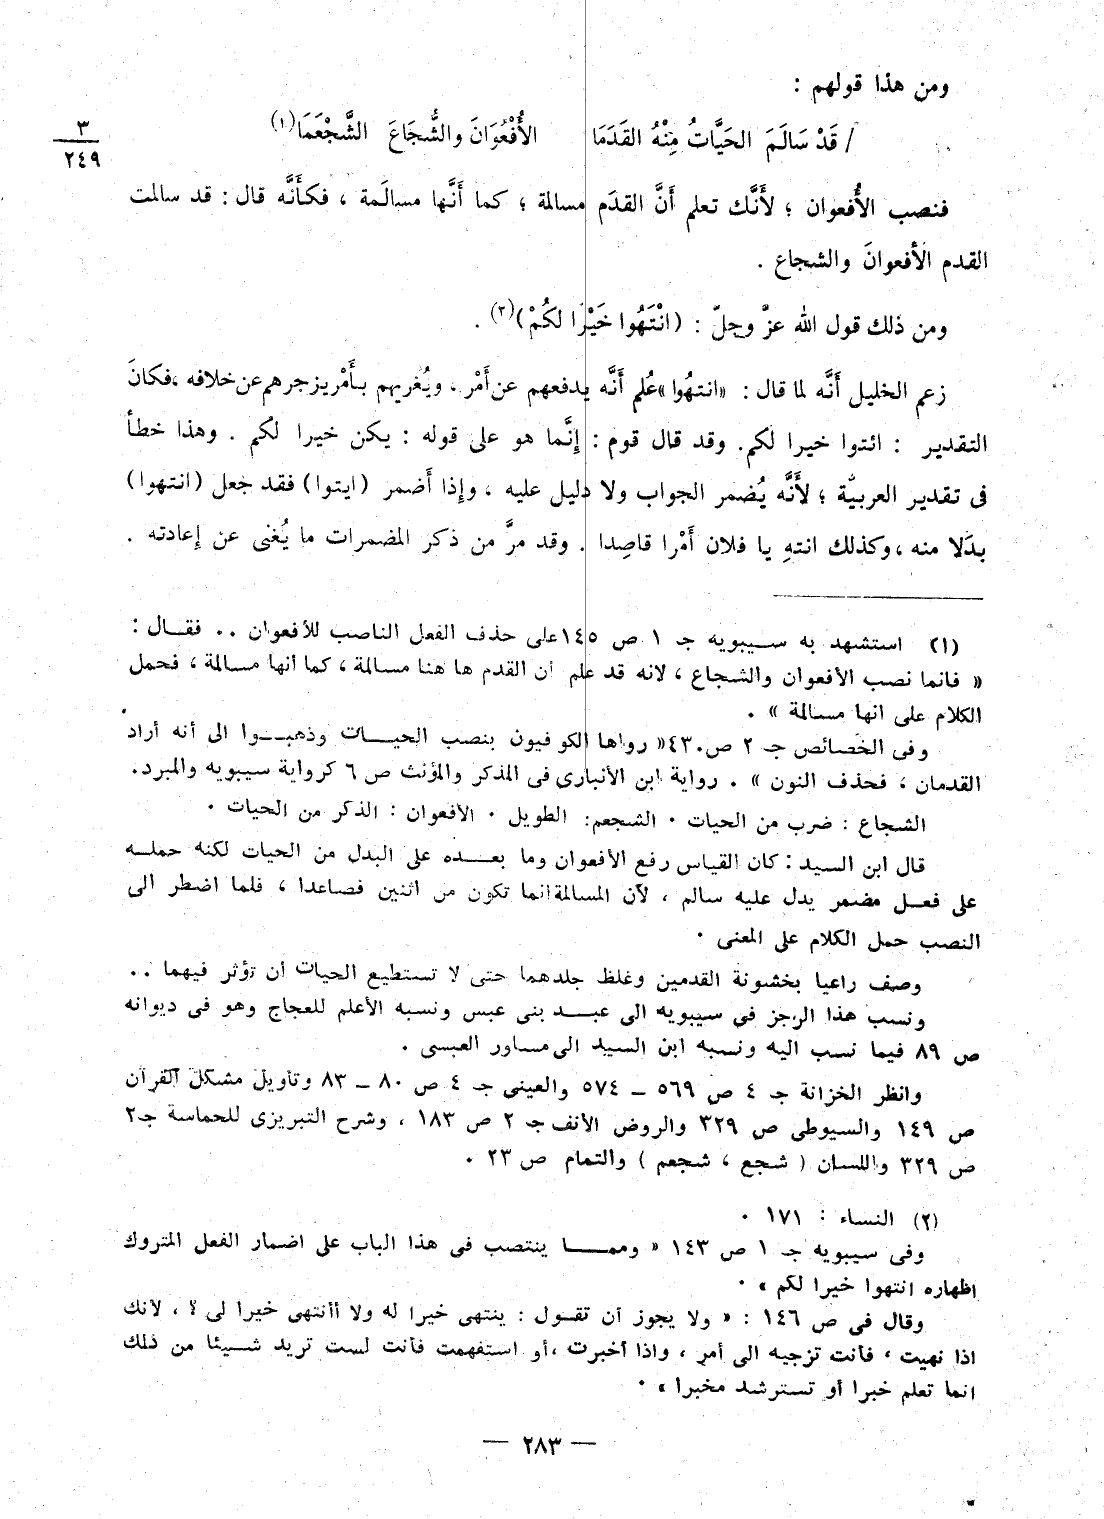 ومن هذا قولهم :
/ قَدْ سَالَمَ الحَيَّاتُ مِنْهُ القَدَمَا الأُفْعُوَانَ والشُّجَاعَ الشَّجْعَمَا(١)
٣
٢٤٩
فنصب الأُفعوان ؛ لأَنَّك تعلم أَنَّ القدَم مسالمة ؛ كما أَنَّها مسالَمة ، فكأَنَّه قال : قد سالمت
القدم الأفعوانَ والشجاع .
ومن ذلك قول الله عزَّ وجلّ : (انْتَهُوا خَيْرًا لكُمْ)(٢) .
زعم الخليل أَنَّه لما قال : «انتهُوا» عُلم أَنَّه يدفعهم عن أَمْر ، ويُغريهم بأَمْر يزجرهم عن خلافه ، فكانَ
التقدير : ائتوا خيرا لكم. وقد قال قوم : إنَّما هو على قوله : يكن خيرا لكم . وهذا خطأ
فى تقدير العربيَّة ؛ لأَنَّه يُضمر الجواب ولا دليل عليه ، وإذا أَضمر (ايتوا) فقد جعل (انتهوا)
بدَلا منه ، وكذلك انتهِ يا فلان أَمْرا قاصِدا . وقد مرَّ من ذكر المضمرات ما يُغنى عن إعادته .
(١) استشهد به سيبويه جـ ١ ص ١٤٥ على حذف الفعل الناصب للأفعوان .. فقال :
« فانما نصب الأفعوان والشجاع ، لانه قد علم أن القدم ها هنا مسالمة ، كما أنها مسالمة ، فحمل
الكلام على انها مسالمة » .
وفى الخصائص جـ ٢ ص ٤٣٠ « رواها الكوفيون بنصب الحيات وذهبوا الى أنه أراد
القدمان ، فحذف النون » . رواية ابن الأنبارى فى المذكر والمؤنث ص ٦ كرواية سيبويه والمبرد.
الشجاع : ضرب من الحيات . الشجعم: الطويل . الأفعوان : الذكر من الحيات .
قال ابن السيد : كان القياس رفع الأفعوان وما بعده على البدل من الحيات لكنه حمله
على فعل مضمر يدل عليه سالم ، لأن المسالمة انما تكون من اثنين فصاعدا ، فلما اضطر الى
النصب حمل الكلام على المعنى .
وصف راعيا بخشونة القدمين وغلظ جلدهما حتى لا تستطيع الحيات أن تؤثر فيهما ..
ونسب هذا الرجز فى سيبويه الى عبد بنى عبس ونسبه الأعلم للعجاج وهو فى ديوانه
ص ٨٩ فيما نسب اليه ونسبه ابن السيد الى مساور العبسى .
وانظر الخزانة جـ ٤ ص ٥٦٩ ــ ٥٧٤ والعينى جـ ٤ ص ٨٠ ــ ٨٣ وتأويل مشكل القرآن
ص ١٤٩ والسيوطى ص ٣٢٩ والروض الأنف جـ ٢ ص ١٨٣ ، وشرح التبريزى للحماسة جـ٢
ص ٣٢٩ واللسان ( شجع ، شجعم ) والتمام ص ٢٣ .
(٢) النساء : ١٧١ .
وفى سيبويه جـ ١ ص ١٤٣ « ومما ينتصب فى هذا الباب على اضمار الفعل المتروك
اظهاره انتهوا خيرا لكم » .
وقال فى ص ١٤٦ : « ولا يجوز أن تقول : ينتهى خيرا له ولا أأنتهى خيرا لى ؟ ، لأنك
اذا نهيت ، فأنت تزجيه الى أمر ، واذا أخبرت ، أو استفهمت فأنت لست تريد شيئا من ذلك
انما تعلم خبرا أو تسترشد مخبرا » .
— ٢٨٣ —